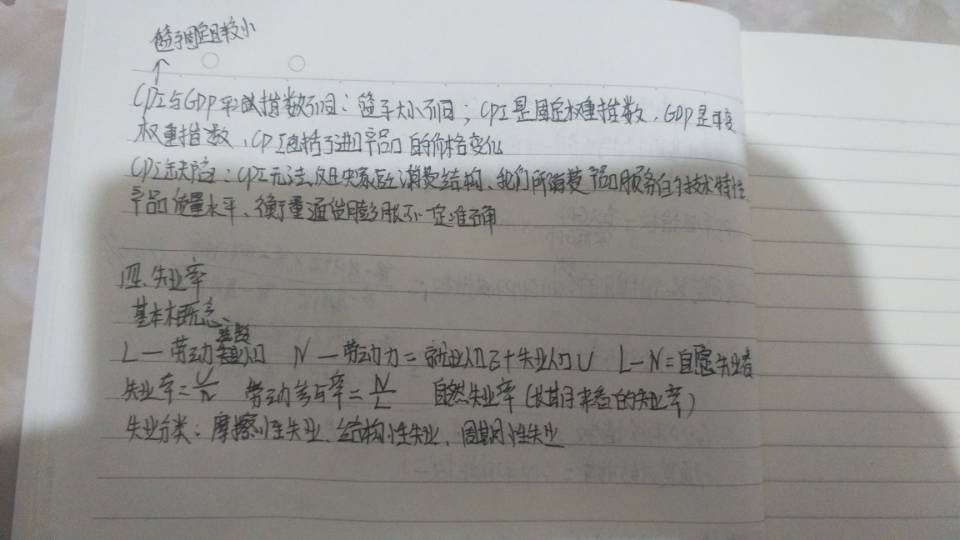 篮子固定且较小
↑
CPI与GDP平减指数不同：篮子大小不同；CPI是固定权重指数，GDP是可变
权重指数，CPI包括了进口产品的价格变化
CPI缺陷：CPI无法反映家庭消费结构、我们所消费产品服务的技术特性
产品质量水平、衡量通货膨胀不一定准确
四.失业率
基本概念、
L—劳动年龄人口 N—劳动力=就业人口E+失业人口U L-N=自愿失业者
失业率=U/N 劳动参与率=N/L 自然失业率(长期来看的失业率)
失业分类：摩擦性失业、结构性失业、周期性失业